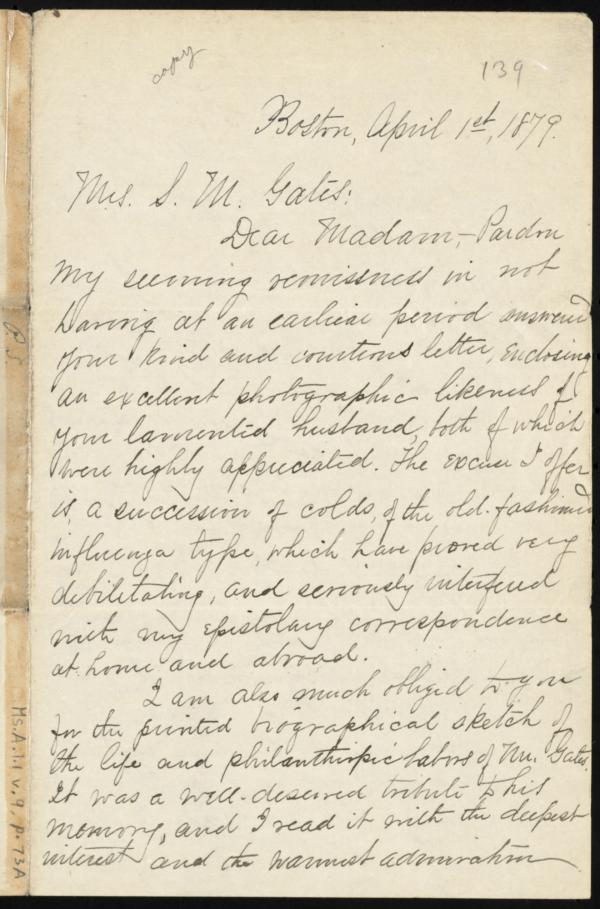 copy
139
Boston, April 1st, 1879.
Mrs. S. M. Gates:
Dear Madam,— Pardon
my seeming remissness in not
having at an earlier period answered
your kind and courteous letter, enclosing
an excellent photographic likeness of
your lamented husband, both of which
were highly appreciated. The excuse I offer
is, a succession of colds, of the old-fashioned
influenza type, which have proved very
debilitating, and seriously interfered
with my epistolary correspondence
at home and abroad.
I am also much obliged to you
for the printed biographical sketch of
the life and philanthropic labors of Mr. Gates.
It was a well-deserved tribute to his
memory, and I read it with the deepest
interest and the warmest admiration
Ms.A.1.1 v.9, p.73A